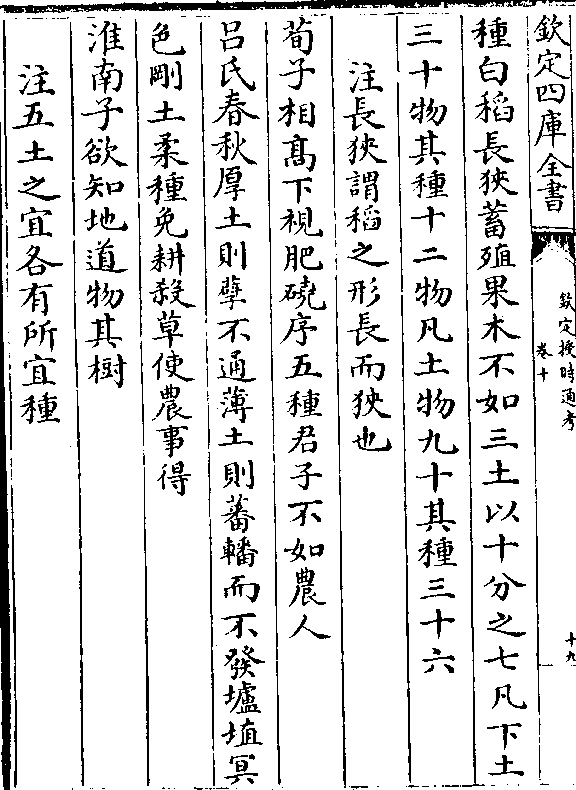 欽定四庫全書
欽定授時通考
卷十
十九
種白稻長狹蓄殖果木不如三土以十分之七凡下土
三十物其種十二物凡土物九十其種三十六
注長狹謂稻之形長而狹也
荀子相髙下視肥磽序五種君子不如農人
吕氏春秋厚土則孽不通薄土則蕃轓而不發壚埴冥
色剛土柔種免耕殺草使農事得
淮南子欲知地道物其樹
注五土之宜各有所宜種